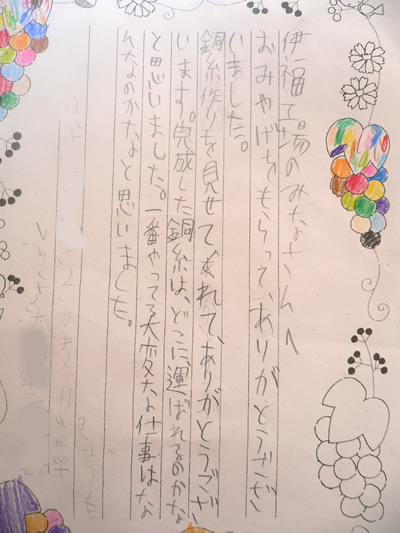 伊福工場のみなさんへ
おみやげをもらって、ありがとうござ
いました。
銅糸作りを見せてくれて、ありがとうござ
います。完成した銅糸は、どこに運ばれるのかな
と思いました。一番やってる大変な仕事はな
んなのかなと思いました。